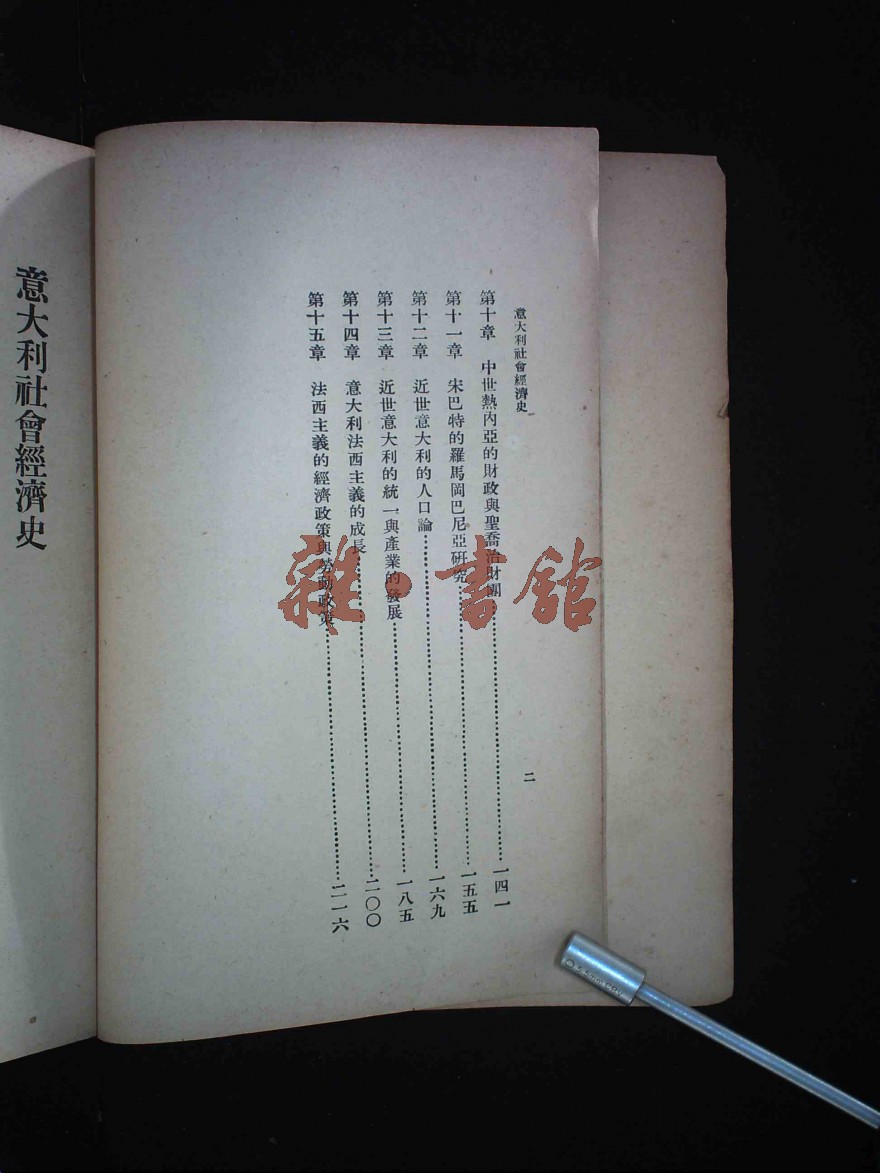 意大利社會經濟史
二
第十章 中世熱內亞的財政與聖喬治財團……一四一
第十一章 宋巴特的羅馬岡巴尼亞研究……一五五
第十二章 近世意大利的人口論……一六九
第十三章 近世意大利的統一與產業的發展……一八五
第十四章 意大利法西主義的成長……二〇〇
第十五章 法西主義的經濟政策與勞動政策……二一六
意大利社會經濟史
雜·書館